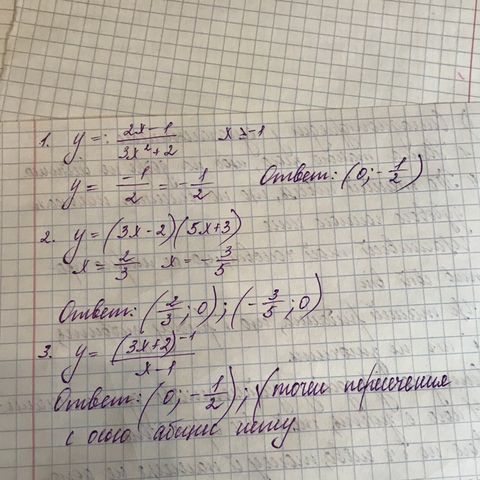 1. y = (2x-1)/(3x²+2) x ≥ -1
y = -1/2 = -1/2 Ответ: (0; -1/2)
2. y = (3x-2)(5x+3)
x = 2/3 x = -3/5
Ответ: (2/3; 0); (-3/5; 0)
3. y = (3x+2)⁻¹/(x-1)
Ответ: (0; -1/2); (точки пересечения
с осью абцис нету.